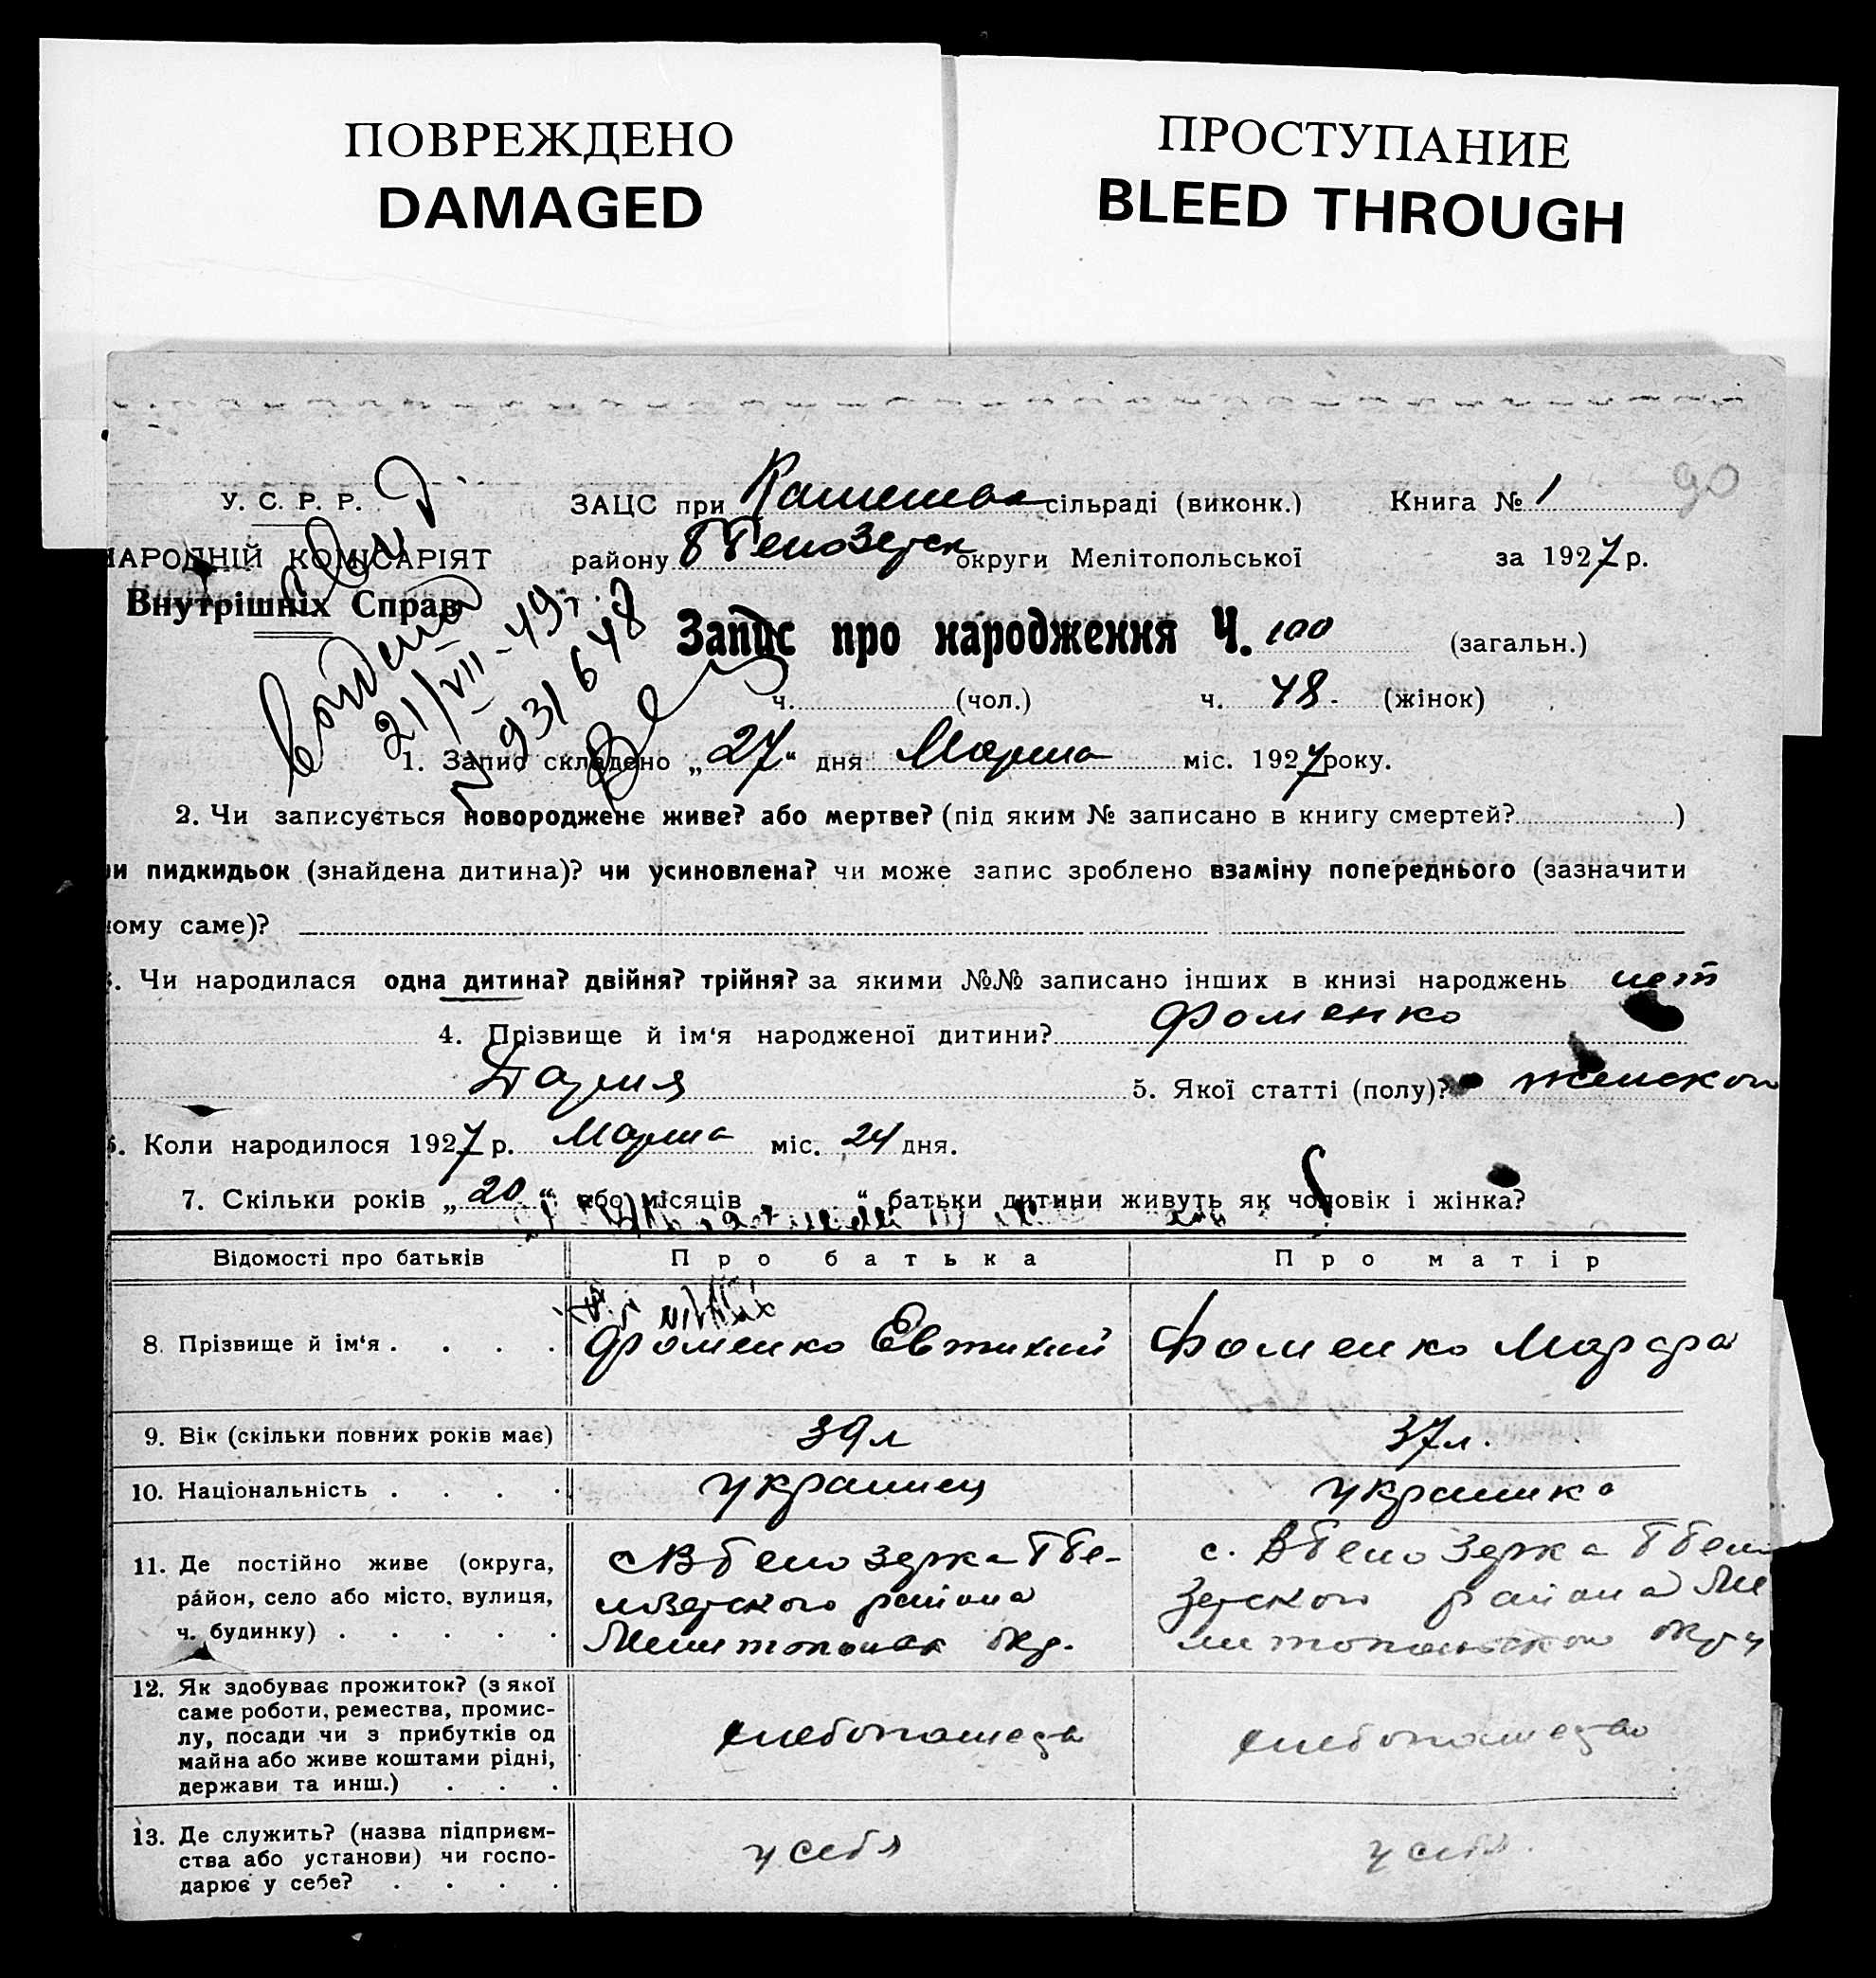 ПОВРЕЖДЕНО
DAMAGED
ПРОСТУПАНИЕ
BLEED THROUGH
90
У. С. Р. Р.
НАРОДНІЙ КОМІСАРІЯТ
Внутрішніх Справ
21/VII-49г.
№ 931648
ЗАЦС при сільраді (виконк.) Книга № 1
району округи Мелітопольської за 1927 р.
Запис про народження Ч. 100 (загальн.)
ч. (чол.) ч. 48 - (жінок)
1. Запис складено „27“ дня Марта міс. 1927 року.
2. Чи записується новороджене живе? або мертве? (під яким № записано в книгу смертей? )
чи пидкидьок (знайдена дитина)? чи усиновлена? чи може запис зроблено взаміну попереднього (зазначити
чому саме)?
3. Чи народилася одна дитина? двійня? трійня? за якими №№ записано інших в книзі народжень нет
4. Прізвище й ім‘я народженої дитини? Фоменко
Дария 5. Якої статті (полу)? женской
6. Коли народилося 1927 р. Марта міс. 24 дня.
7. Скільки років „20“ або місяців “ батьки дитини живуть як чоловік і жінка?
Відомості про батьків Про батька Про матір
8. Прізвище й ім‘я . . . . Фоменко Евтихий Фоменко Марфа
9. Вік (скільки повних років має) 39 л 37 л.
10. Національність . . . . украинец украинка
11. Де постійно живе (округа,
район, село або місто, вулиця,
ч. будинку) . . . . .
с В белозерка Г бе-
лозерского района
Мелитопольск окр.
с. В белозерка Г бело
зерского района Ме
литопольской окру
12. Як здобуває прожиток? (з якої
саме роботи, ремества, промис-
лу, посади чи з прибутків од
майна або живе коштами рідні,
держави та инш.) . . .
хлебопашество
хлебопашество
13. Де служить? (назва підприєм-
ства або установи) чи госпо-
дарює у себе? . . . .
у себя
у себя.